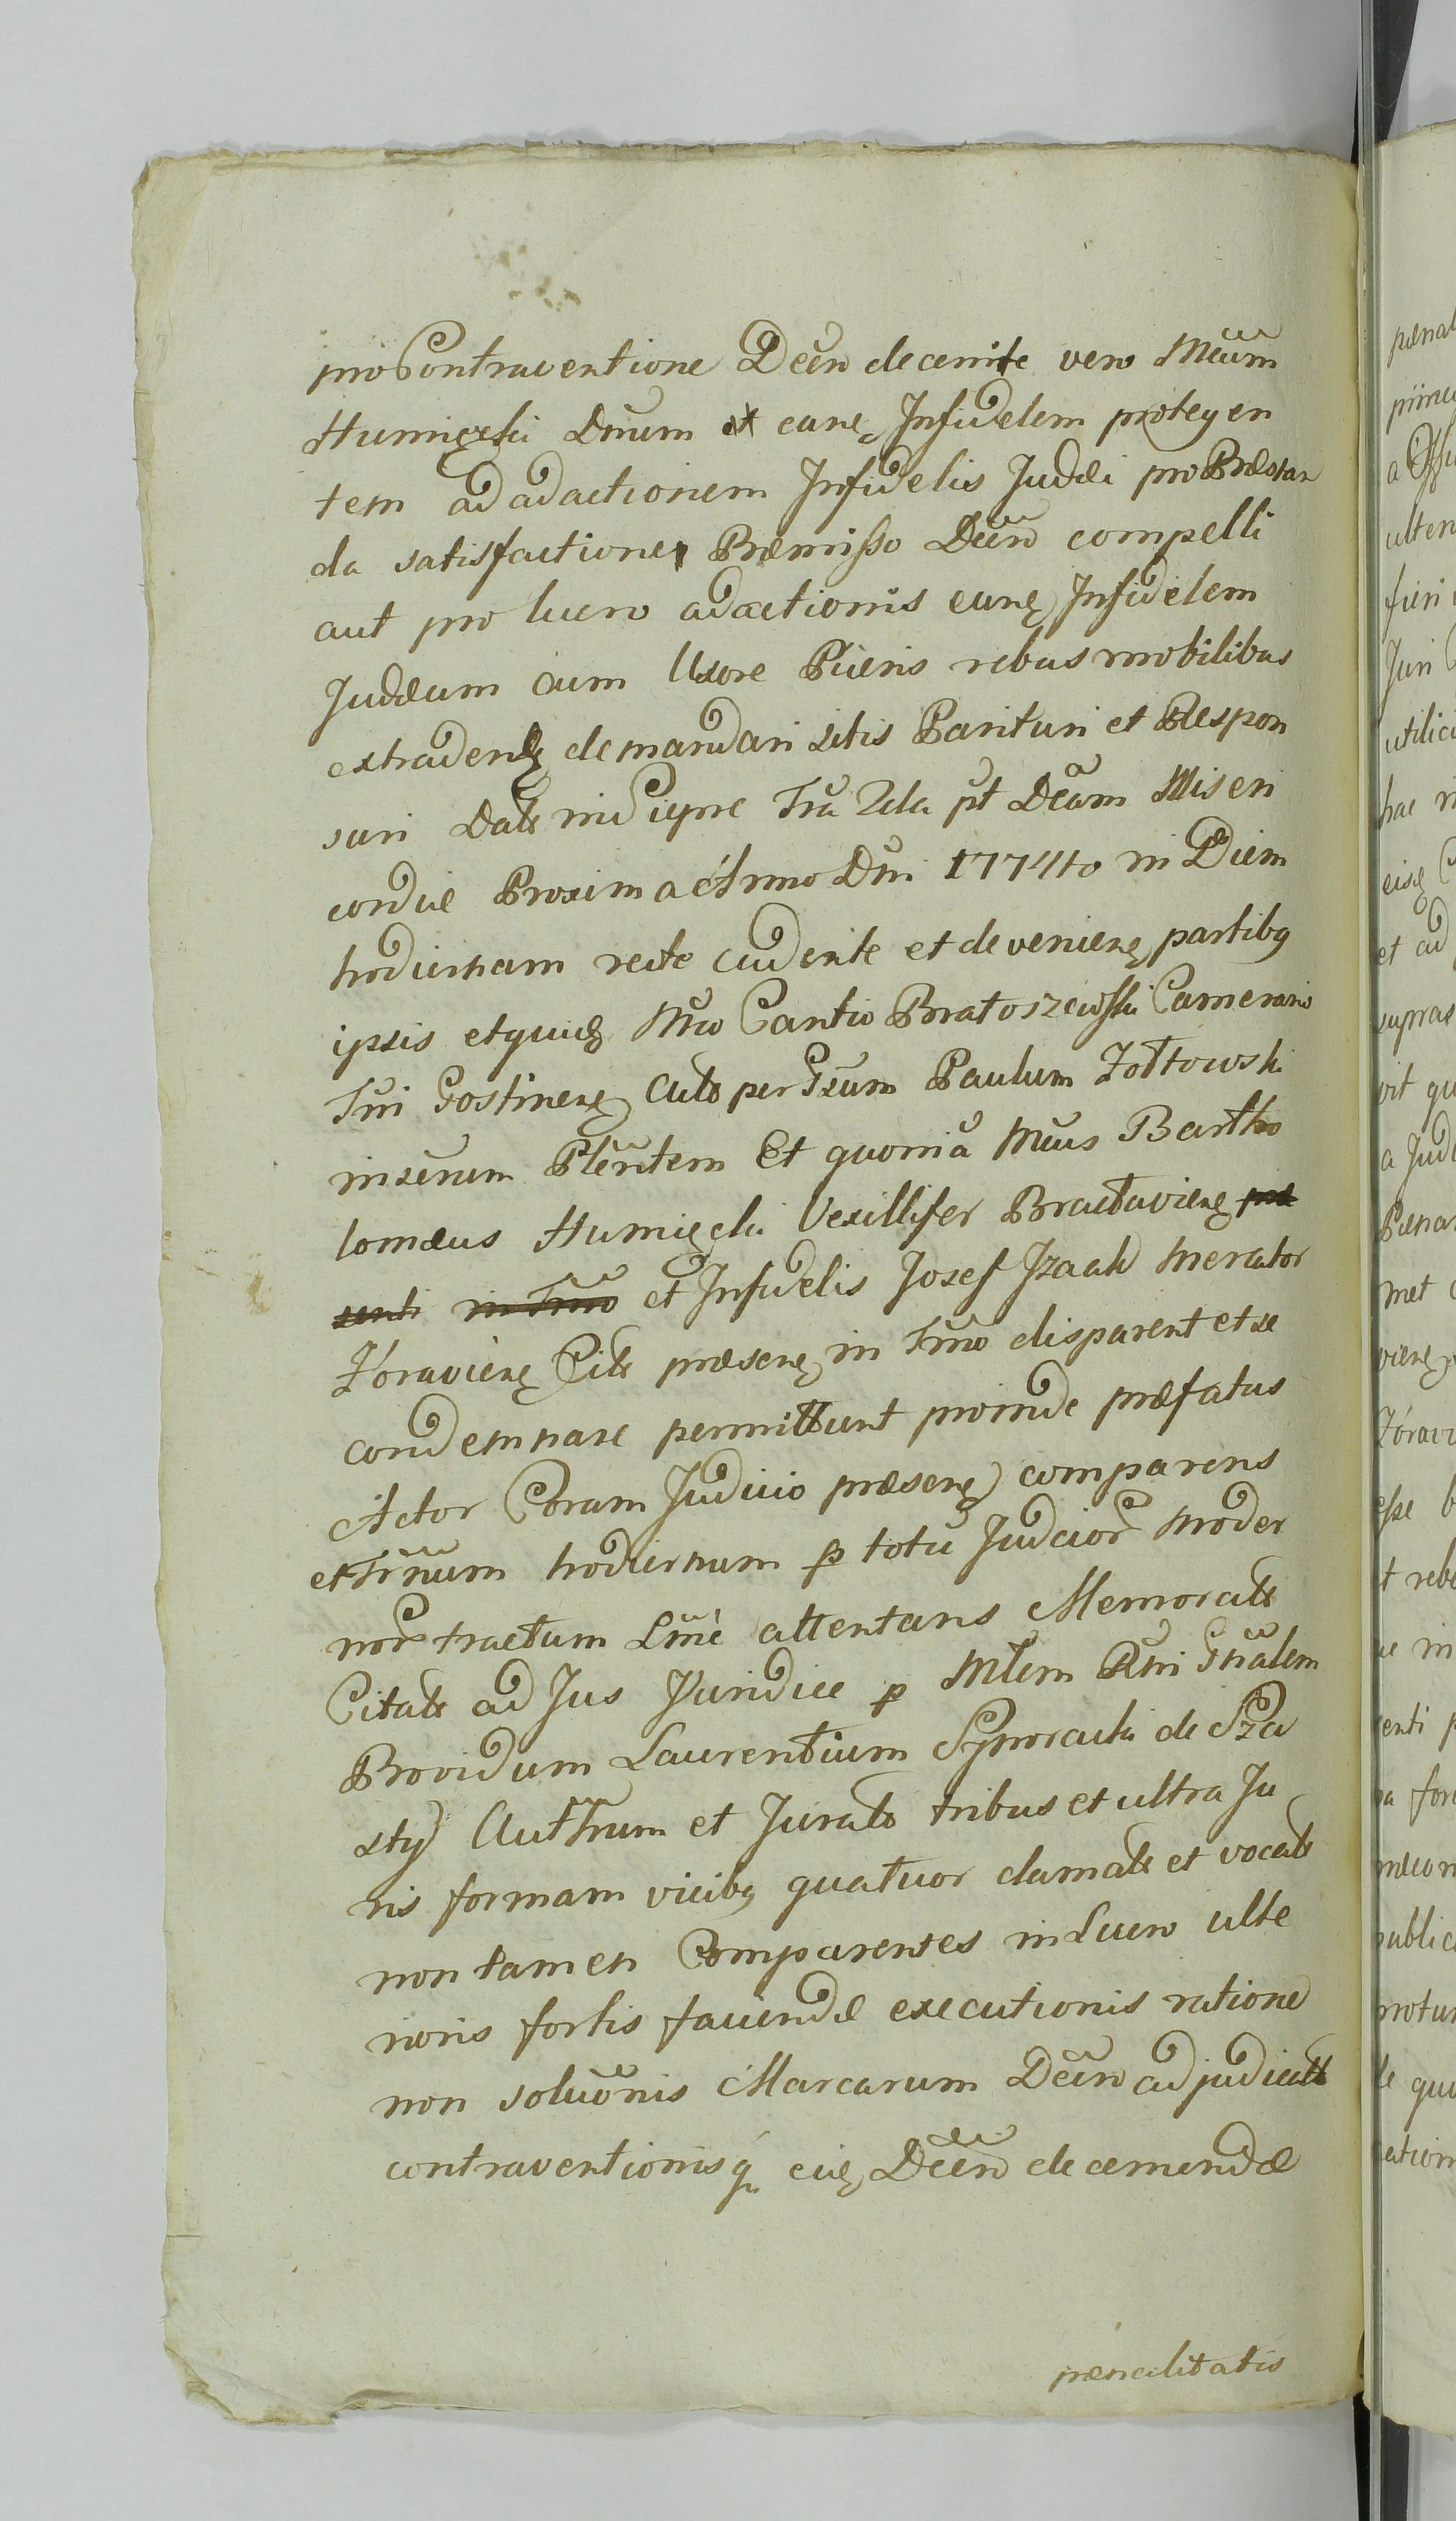 pro Contraventione Decen decernite vero Mcum
Humięcki Dnum et eunę Infidelem protegen
tem ad adactionem Infidelis Judæi pro Præstan
da satisfactione Præmisso Decen compelli
aut pro lucro adactionis eunę Infidelem
Judæum cum Uxore Pueris rebus mobilibus
extradendę demandari Litis Parituri et Respon
suri Datt in Ciepne Fra 2da pt Dcam Miseri
cordiæ Proxima Anno Dni 177
hodiernam recte cadente et devenienę partibg
ipsis etquidę Mco Cantio Bratoszewski Camerario
Tri Gostinenę Actto per Gsum Paulum Zołtowski
inserum Plentem Et quoniã Mcus Bartho
lomæus Humięcki Vexillifer Bractavienę præ
senti in Tmo et Infidelis Josef Jzaak Mercator
Zóravienę Citt præsenę in Tmo disparent et se
condemnare permittunt proinde præfatus
Actor Coram Judicio præsenę comparens
et Tmnum hodiernum p totũ Judicior moder
nor tractum Lmè attentans Memoratt
Citatt ad Jus Juridice p Mtem Rni Gnalem
Providum Laurentium Synoracki de Sza
sty Authum et Juratt tribus et ultra Ju
ris formam vicibg quatuor clamatt et vocatt
non tamen Comparentes in Lucro ulte
rioris fortis faciendæ executionis ratione
non soluonis Marcarum Decen adjudicatt
contraventionisq eię Decen decernendæ
pænalitatis